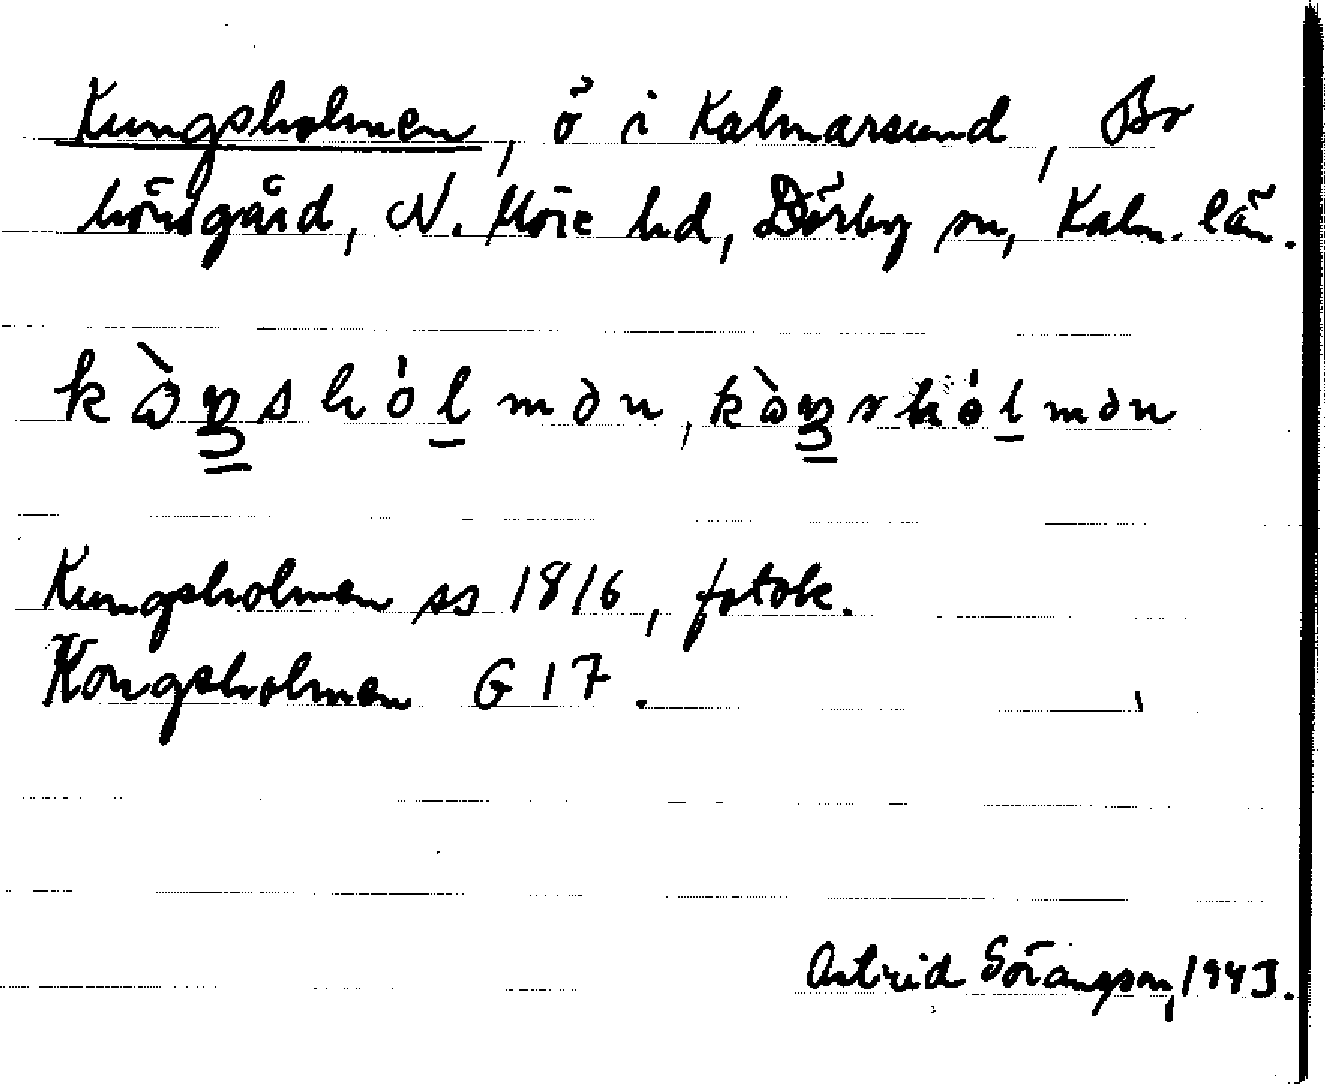 Kungsholmen, ö i Kalmarsund, Bo
hövsgård, N. Möre hd, Dörby sn, Kalm. län.
kòŋshólmən, kòŋshólmən
Kungsholmen ss 1816, fotok.
Kongsholmen G 17.
Astrid Sörangson, 1943.